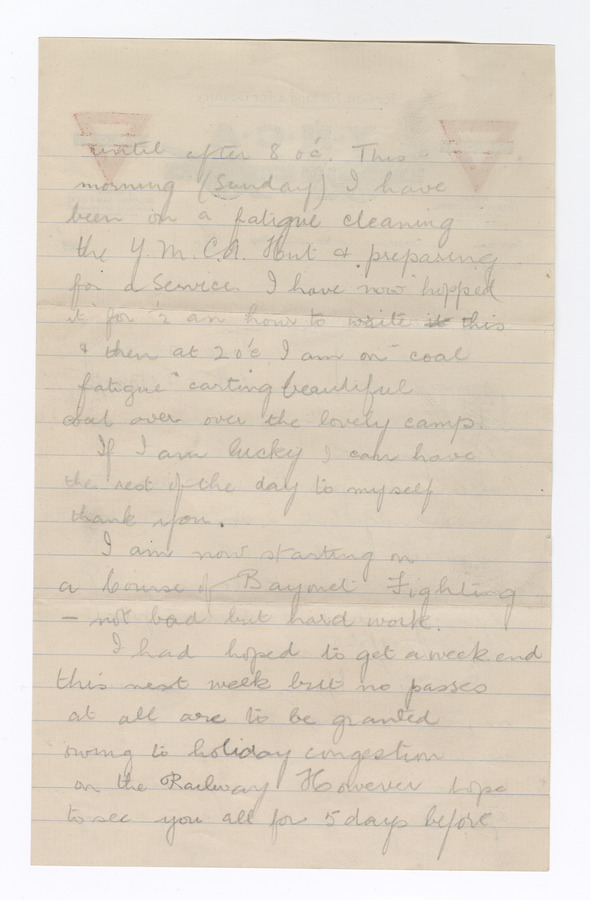 until after 8 oc. This
morning (Sunday) I have
been on a fatigue cleaning
the Y.M.C.A. Hut & preparing
for a Service. I have now hopped
it for ½ an hour to write it this
& then at 2 o'c I am on "coal
fatigue" carting beautiful
coal over over the lovely camp.
If I am lucky I can have
the rest of the day to myself
thank you.
I am now starting on
a Course of Bayonet Fighting
— not bad but hard work.
I had hoped to get a week end
this next week but no passes
at all are to be granted
owing to holiday congestion
on the Railway However hope
to see you all for 5 days before